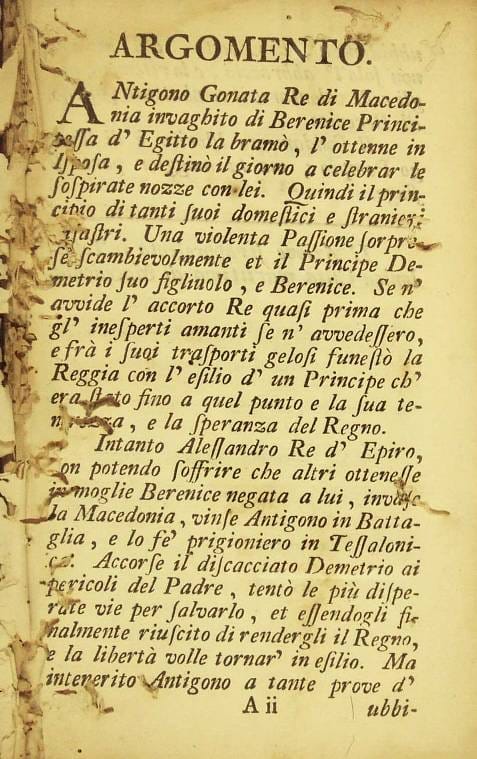 ARGOMENTO.
ANtigono Gonata Re di Macedo-
nia invaghito di Berenice Princi-
pessa d' Egitto la bramò, l' ottenne in
Isposa, e destinò il giorno a celebrar le
sospirate nozze con lei. Quindi il prin-
cipio di tanti suoi domestici e stranieri
disastri. Una violenta Passione sorpre-
se scambievolmente et il Principe De-
metrio suo figliuolo, e Berenice. Se n'
avvide l' accorto Re quasi prima che
gl' inesperti amanti se n' avvedessero,
e frà i suoi trasporti gelosi funestò la
Reggia con l' esilio d' un Principe ch'
era stato fino a quel punto e la sua te-
nerezza, e la speranza del Regno.
Intanto Alessandro Re d' Epiro,
non potendo soffrire che altri ottenesse
in moglie Berenice negata a lui, invase
la Macedonia, vinse Antigono in Batta-
glia, e lo fe' prigioniero in Tessaloni-
ca. Accorse il discacciato Demetrio ai
pericoli del Padre, tentò le più dispe-
rate vie per salvarlo, et essendogli fi-
nalmente riuscito di rendergli il Regno,
e la libertà volle tornar' in esilio. Ma
intenerito Antigono a tante prove d'
A ii ubbi-